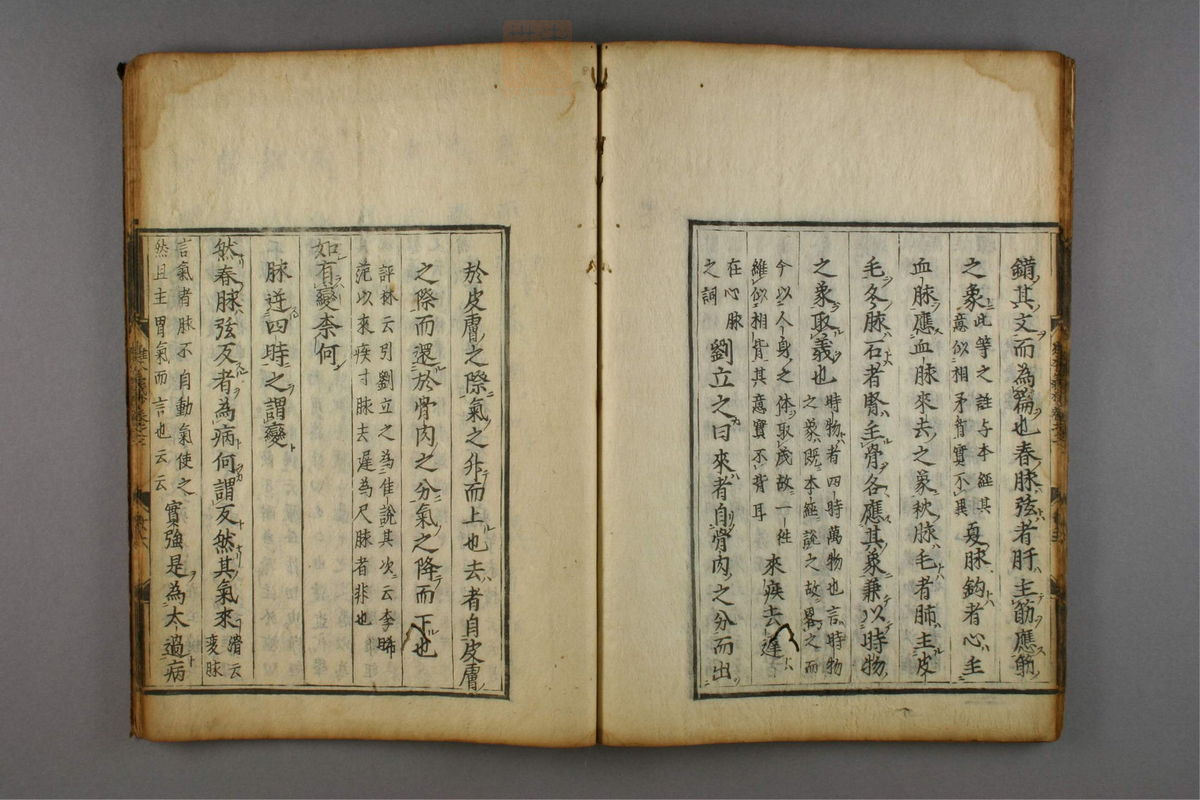 錯其文而為篇也春脉弦者肝主筋應筋
之象此等之註与本經其
意似相矛背實不異
夏脉鈎者心主
血脉應血脉來去之象秋脉毛者肺主皮
毛冬脉石者腎主骨各應其象兼以時物
之象取義也時物者四時萬物也言時物
之象既本經註之故畧之而
今以人身之体取
雖似相背其意實不背耳
來疾去遲
在心脉
之詞
劉立之曰來者自骨肉之分而出
於皮膚之際氣之升而上也去者自皮膚
之際而還於骨肉之分氣之降而下也
評林云引劉立之為佳說其次云李晞
范以來疾寸脉去遲為尺脉者非也
如有變奈何
脉逆四時之謂變
然春脉弦反者為病何謂反然其氣來
滑云
変脉
言氣者脉不自動氣使之
然且主胃氣而言也云云
實強是為太過病